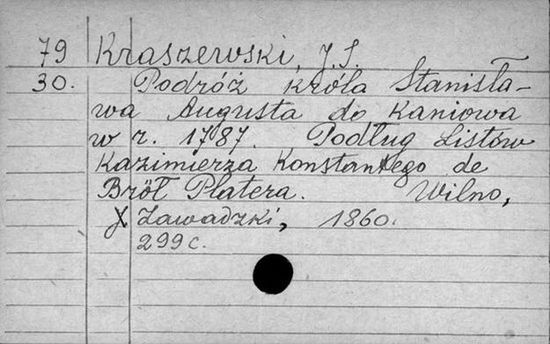 79 Kraszewski, J. S.
30. Podróż króla Stanisła-
wa Augusta do Kaniowa
w r. 1787. Podług Listów
Kazimierza Konstantego de
Bröl Platera. Wilno,
Zawadzki, 1860.
299 c.